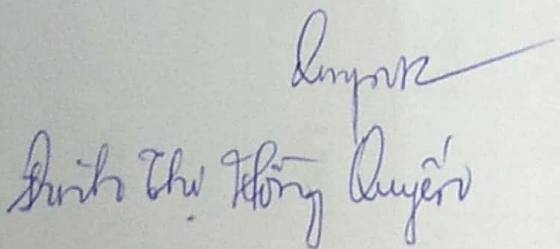 Quyên
Đinh Thị Hồng Quyên